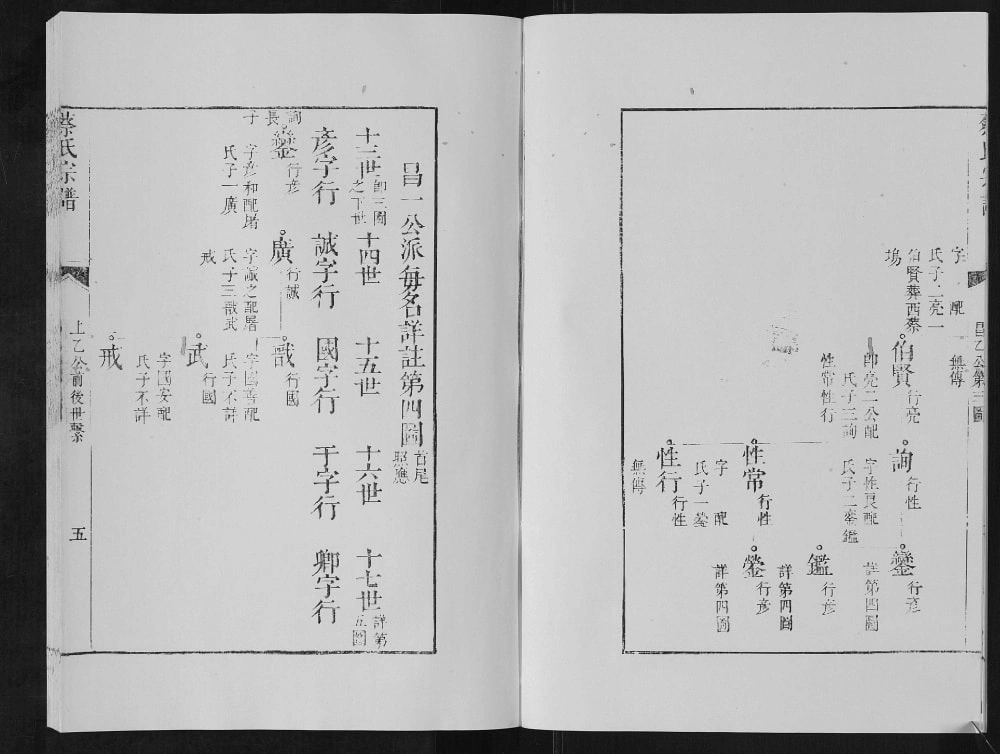 字　配
氏子二亮一
伯賢葬西蔡
塢
無傳
昌乙公第三圖
伯賢
行亮
即亮二公配
氏子三詢
性常性行
詢
行性
字性良配
氏子二鋆鑑
性常
行性
字　配
氏子一鎣
性行
行性
無傳
行彥
詳第四圖
鑑
行彥
詳第四圖
鎣
行彥
詳第四圖
昌一公派每名詳註第四圖
首尾
照應
十三世
即三圖
之下世
十四世
十五世
十六世
十七世
詳第
五圖
彥字行
誠字行
國字行
于字行
卿字行
詢
長
子
行彥
字彥和配屠
氏子一廣
廣
行誠
字誠之配屠
氏子三戬武
戒
行國
字國善配
氏子不詳
武
行國
字國安配
氏子不詳
戒
蔡氏宗譜
上乙公前後世繫
五